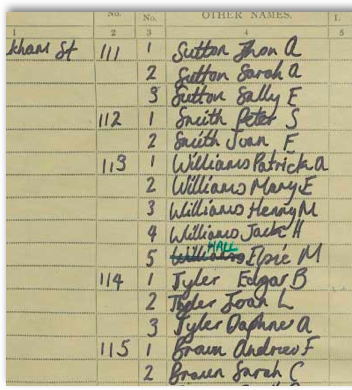 No. No. OTHER NAMES. I.
1 2 3 4 5
kham St 111 1 Sutton Jhon A
2 Sutton Sarah A
3 Sutton Sally E
112 1 Smith Peter S
2 Smith Joan F
113 1 Williams Patrick A
2 Williams Mary E
3 Williams Henry M
4 Williams Jack H
HALL
5 Williams Elsie M
114 1 Tyler Edgar B
2 Tyler Joan L
3 Tyler Daphne A
115 1 Brown Andrew F
2 Brown Sarah C